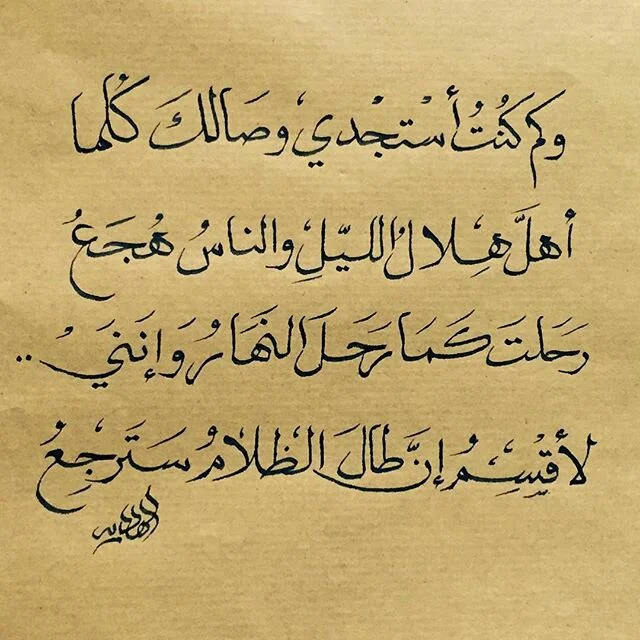 وكم كُنتُ أستْجْدي وصَالكَ كُلما
أهلَّ هِلالُ الليّلِ والناسُ هُجَعُ
رَحَلتَ كَمَا رَحَلَ النَهَارُ وَإنَنيَْ ..
لأقْسِمُ إنَّ طَالَ الظلامُ سَتَرجِعُ